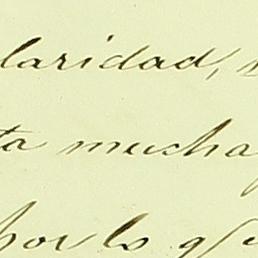 laridad,
ta mucha
por lo q